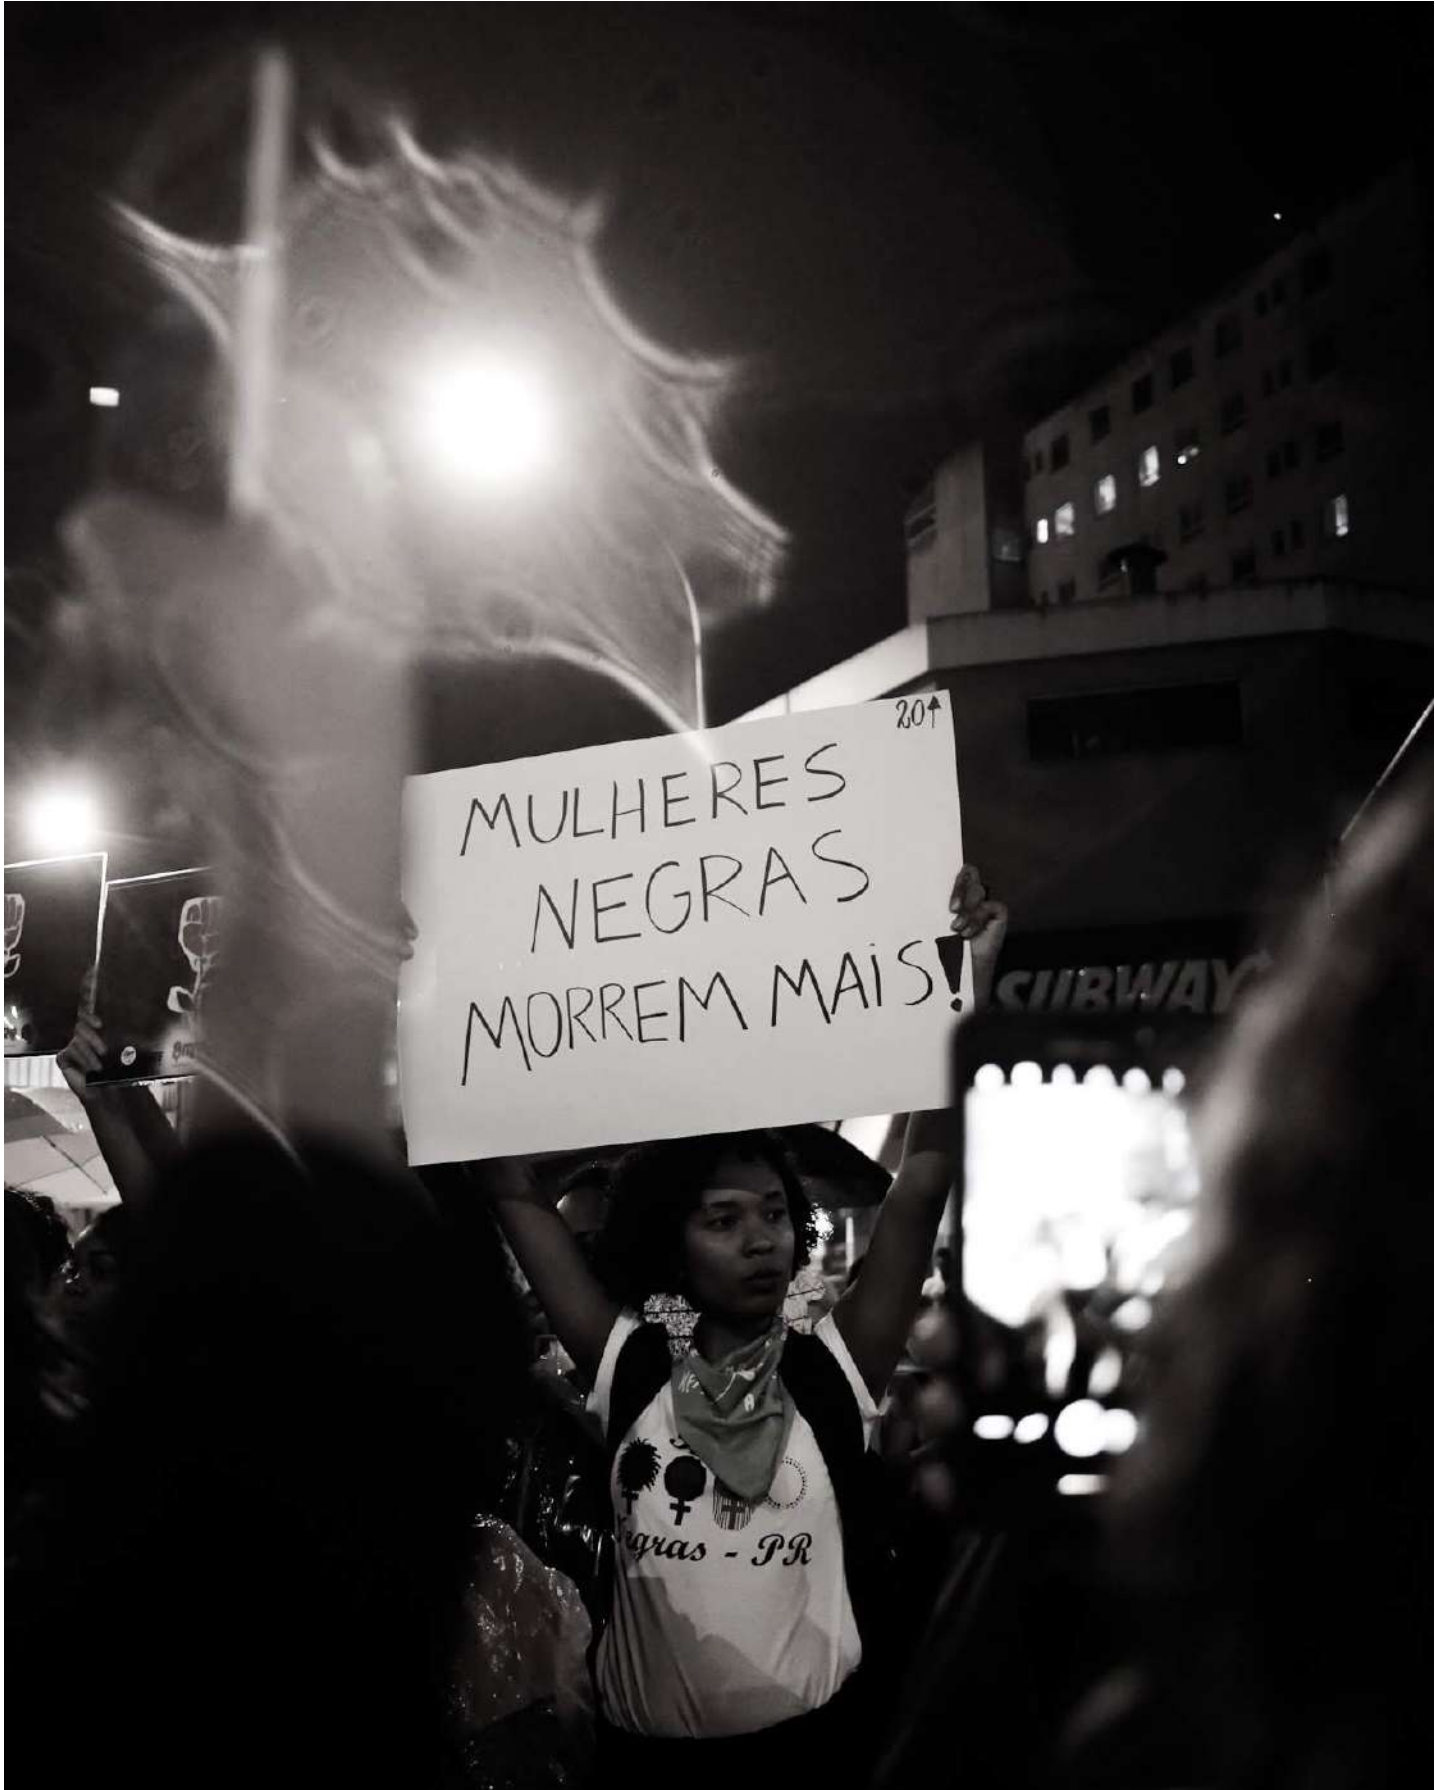 20↑
MULHERES
NEGRAS
MORREM MAiS!
SUBWAY
8m
- PR